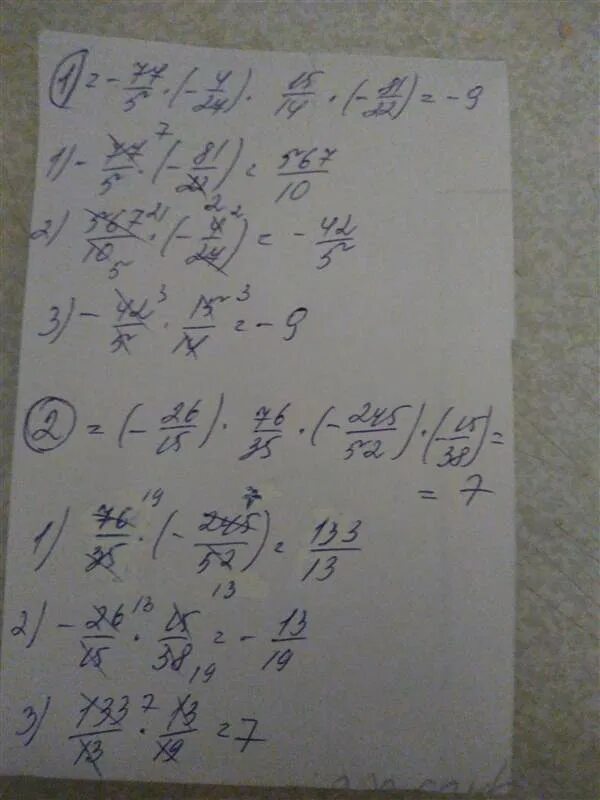 ① = - 77/5 · (- 4/27) · 15/14 · (- 81/22) = - 9
1) - 77/5 7 · (- 81/22 2) = 567/10
2) 567/10 21 5 · (- 4/27 2) = - 42/5
3) - 42/5 3 · 15/14 3 = - 9
② = (- 26/15) · 76/35 · (- 245/52) · (- 15/38) =
= 7
1) 76/35 19 · (- 245/52 7 13) = 133/13
2) - 26/15 13 · 15/38 19 = - 13/19
3) 133/13 7 · 13/19 = 7